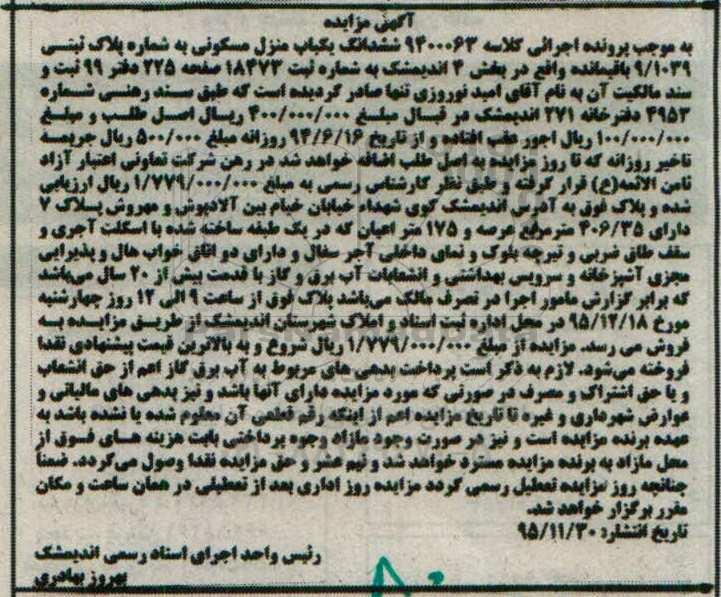 آگهی مزایده
به موجب پرونده اجرائی کلاسه ۹۴۰۰۰۶۳ ششدانگ یکباب منزل مسکونی به شماره پلاک ثبتی
۹/۱۰۳۹ باقیمانده واقع در بخش ۴ اندیمشک به شماره ثبت ۱۸۴۷۳ صفحه ۲۲۵ دفتر ۹۹ ثبت و
سند مالکیت آن به نام آقای امید نوروزی تنها صادر گردیده است که طبق سند رهنی شماره
۴۹۵۳ دفترخانه ۲۷۱ اندیمشک در قبال مبلغ ۴۰۰/۰۰۰/۰۰۰ ریال اصل طلب و مبلغ
۱۰۰/۰۰۰/۰۰۰ ریال اجور عقب افتاده و از تاریخ ۹۴/۶/۱۶ روزانه مبلغ ۵۰۰/۰۰۰ ریال جریمه
تاخیر روزانه که تا روز مزایده به اصل طلب اضافه خواهد شد در رهن شرکت تعاونی اعتبار آزاد
ثامن الائمه(ع) قرار گرفته و طبق نظر کارشناس رسمی به مبلغ ۱/۷۷۹/۰۰۰/۰۰۰ ریال ارزیابی
شده و پلاک فوق به آدرس اندیمشک کوی شهداء خیابان خیام بین آلادپوش و مهروش پلاک ۷
دارای ۴۰۶/۳۵ مترمربع عرصه و ۱۷۵ متر اعیان که در یک طبقه ساخته شده با اسکلت آجری و
سقف طاق ضربی و تیرچه بلوک و نمای داخلی آجر سفال و دارای دو اتاق خواب هال و پذیرایی
مجزی آشپزخانه و سرویس بهداشتی و انشعابات آب برق و گاز با قدمت بیش از ۲۰ سال می‌باشد
که برابر گزارش مامور اجرا در تصرف مالک می‌باشد پلاک فوق از ساعت ۹ الی ۱۲ روز چهارشنبه
مورخ ۹۵/۱۲/۱۸ در محل اداره ثبت اسناد و املاک شهرستان اندیمشک از طریق مزایده به
فروش می رسد. مزایده از مبلغ ۱/۷۷۹/۰۰۰/۰۰۰ ریال شروع و به بالاترین قیمت پیشنهادی نقدا
فروخته می‌شود. لازم به ذکر است پرداخت بدهی های مربوط به آب برق گاز اعم از حق انشعاب
و یا حق اشتراک و مصرف در صورتی که مورد مزایده دارای آنها باشد و نیز بدهی های مالیاتی و
عوارض شهرداری و غیره تا تاریخ مزایده اعم از اینکه رقم قطعی آن معلوم شده یا نشده باشد به
عهده برنده مزایده است و نیز در صورت وجود مازاد وجوه پرداختی بابت هزینه های فوق از
محل مازاد به برنده مزایده مسترد خواهد شد و نیم عشر و حق مزایده نقدا وصول می‌گردد. ضمناً
چنانچه روز مزایده تعطیل رسمی گردد مزایده روز اداری بعد از تعطیلی در همان ساعت و مکان
مقرر برگزار خواهد شد.
تاریخ انتشار: ۹۵/۱۱/۳۰
رئیس واحد اجرای اسناد رسمی اندیمشک
بهروز بهادری